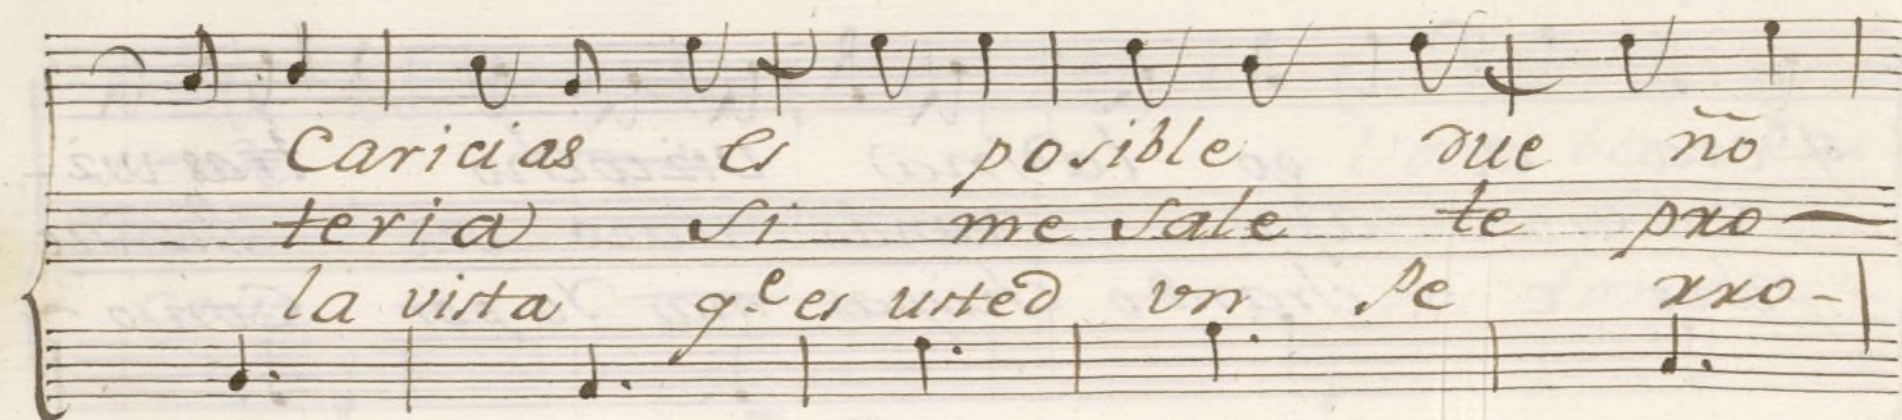 Caricias es posible due ño
teria si me sale te pro
la vista q.e es usted vn Pe rro-